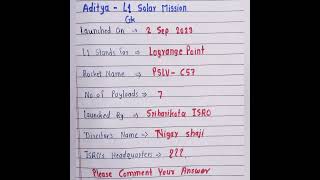 Aditya - L1 Solar Mission
Gk
Launched On → 2 Sep 2023
L1 Stands for → Lagrange Point
Rocket Name → PSLV - C57
No of Payloads → 7
Launched By → Sriharikota ISRO
Director's Name → Nigar shaji
ISRO's Headquarters → ???
Please Comment Your Answer